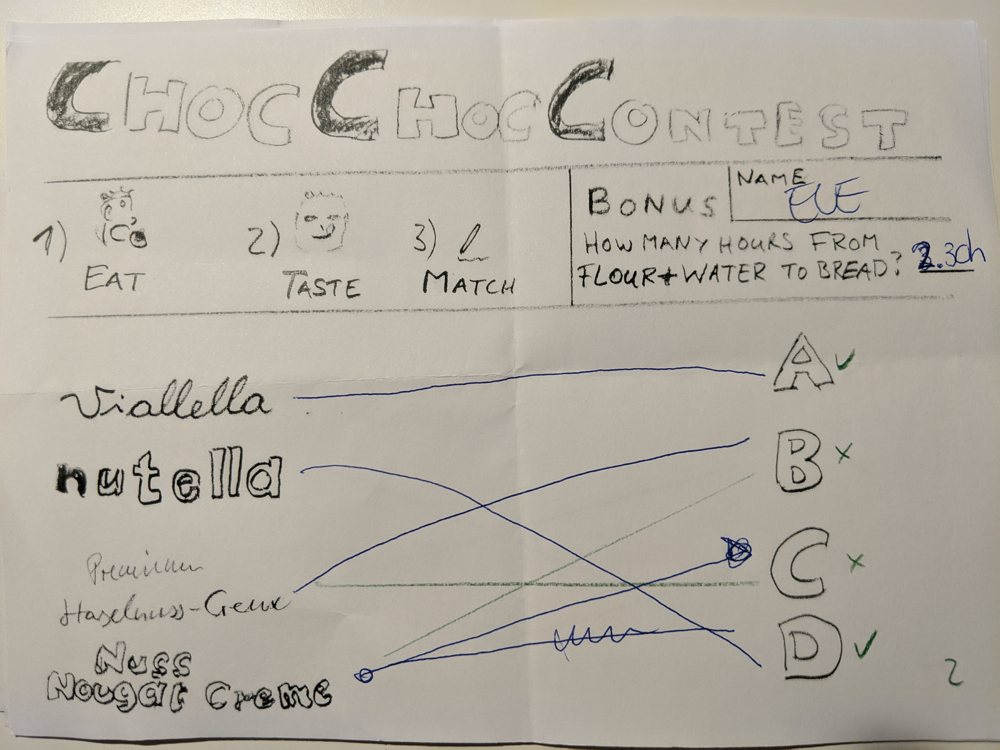 CHOC CHOC CONTEST
1) EAT
2) TASTE
3) MATCH
BONUS
NAME
ELE
HOW MANY HOURS FROM
FLOUR + WATER TO BREAD? 2.30h
Viallella
A ✓
nutella
B ×
Premium
Haselnuss-Creme
C ×
Nuss
Nougat Creme
D ✓
2